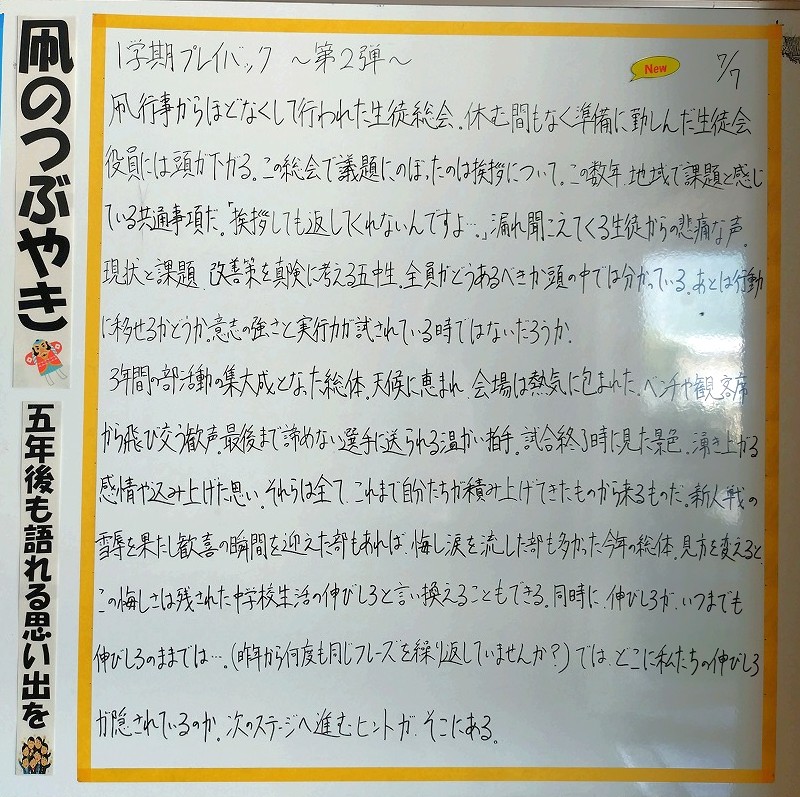 凧のつぶやき
五年後も語れる思い出を
1学期プレイバック ～第2弾～
New
7/7
凧行事からほどなくして行われた生徒総会。休む間もなく準備に勤しんだ生徒会
役員には頭が下がる。この総会で議題にのぼったのは挨拶について。この数年、地域で課題と感じ
ている共通事項だ。「挨拶しても返してくれないんですよ…。」漏れ聞こえてくる生徒からの悲痛な声。
現状と課題、改善策を真険に考える五中生。全員がどうあるべきか頭の中では分かっている。あとは行動
に移せるかどうか。意志の強さと実行力が試されている時ではないだろうか。
3年間の部活動の集大成となった総体。天候に恵まれ、会場は熱気に包まれた。ベンチや観客席
から飛び交う歓声。最後まで諦めない選手に送られる温かい拍手。試合終了時に見た景色。湧き上がる
感情や込み上げた思い。それらは全て、これまで自分たちが積み上げてきたものから来るものだ。新人戦の
雪辱を果たし歓喜の瞬間を迎えた部もあれば、悔し涙を流した部も多かった今年の総体。見方を変えると、
この悔しさは残された中学校生活の伸びしろと言い換えることもできる。同時に、伸びしろが、いつまでも
伸びしろのままでは…。(昨年から何度も同じフレーズを繰り返していませんか?)では、どこに私たちの伸びしろ
が隠されているのか。次のステージへ進むヒントが、そこにある。